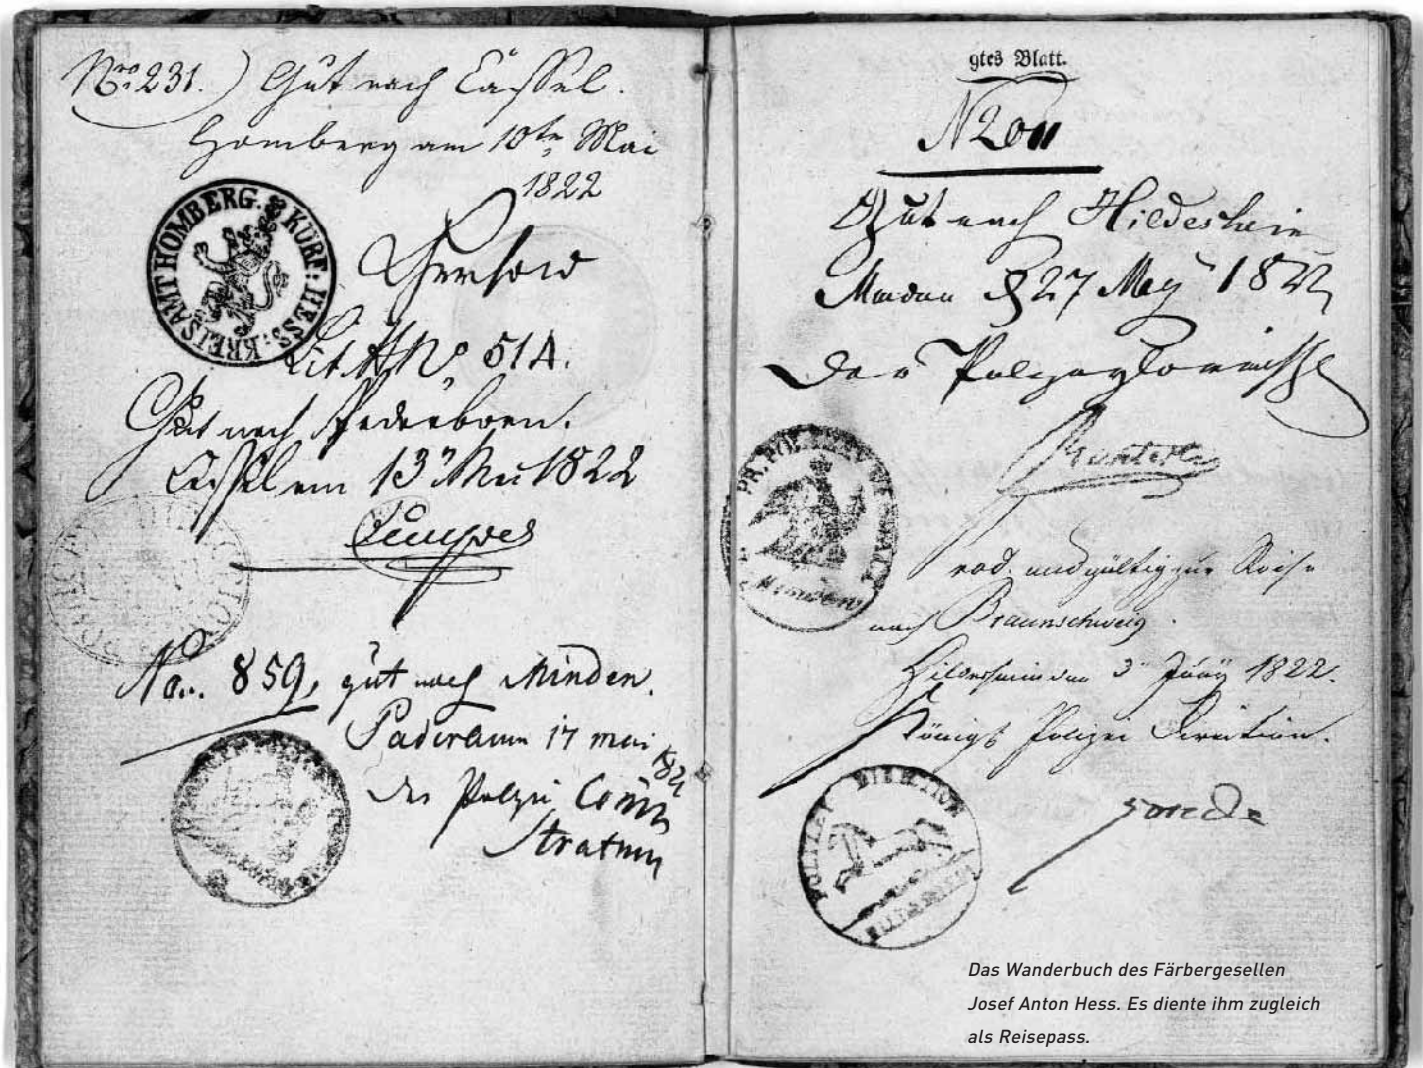 Nro 231.) Gut nach Cassel.
Homberg am 10ten Mai
1822
KURF: HESS: KREISAMT HOMBERG.
Lit A No 514.
Gut nach Paderborn.
Cassel am 13 Mai 1822
No.. 859, gut nach Minden.
Paderborn 17 mai
1822
Der Polizei Comm
gtes Blatt.
Gut nach Hildesheim
Minden d 27 May 1822
Der Polizey
PR. POLIZEY
Minden
vod. und gültig zur Reise
nach Braunschweig.
Hildesheim den 3 Juny 1822.
Königl Polizei Direction.
POLIZEY DIRECTION
Das Wanderbuch des Färbergesellen
Josef Anton Hess. Es diente ihm zugleich
als Reisepass.